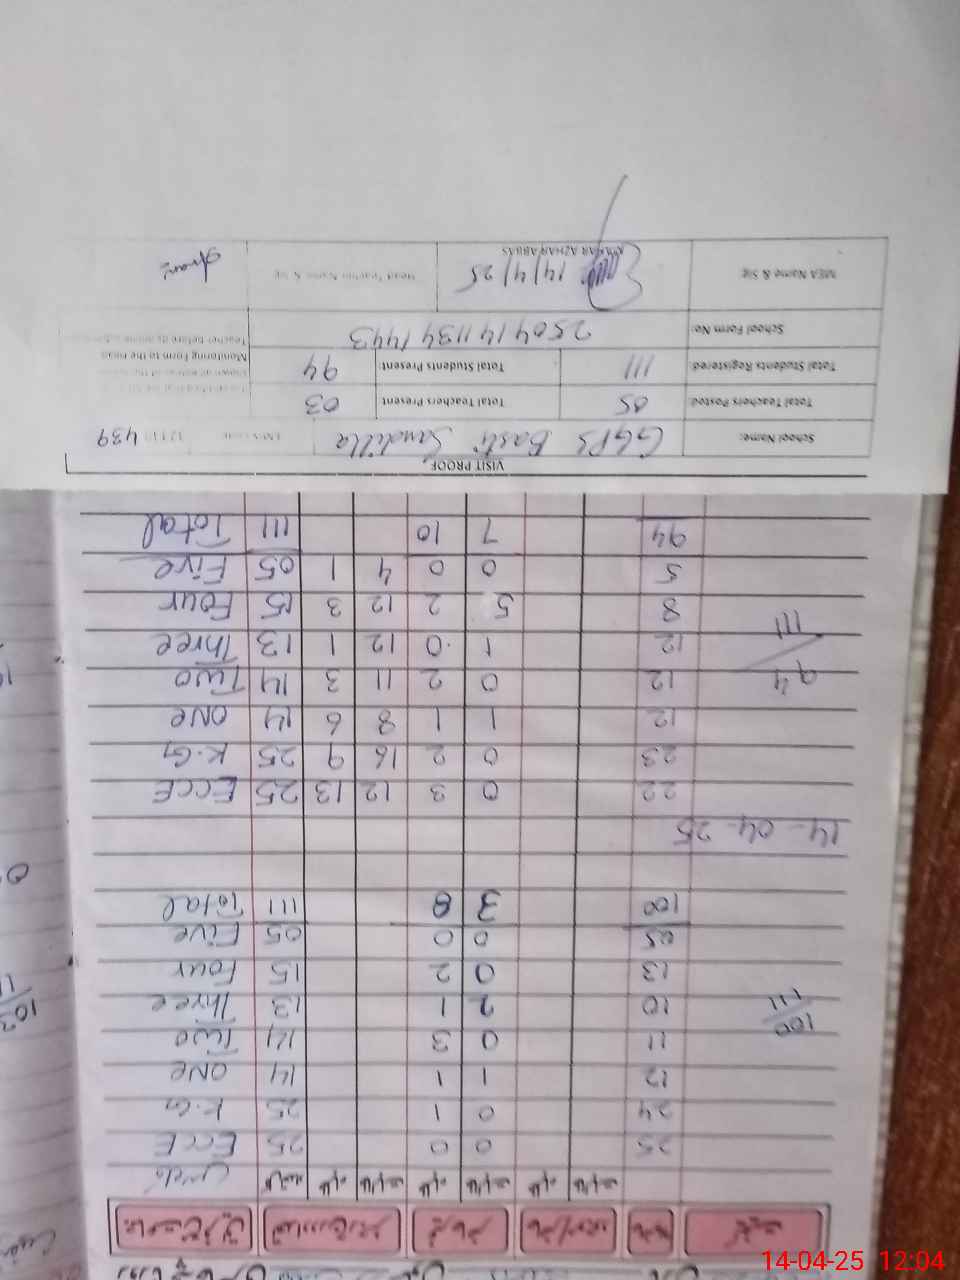 کیفیت حاضر غیر حاضر
طالبات طلباء طالبات طلباء طالبات طلباء
25 0 0 25 ECCE
24 0 1 25 K.G
12 1 1 14 ONE
11 0 3 14 Two
100/111 10 2 1 13 Three
13 0 2 15 Four
05 0 0 05 Five
100 3 8 111 Total
14-04-25
22 0 3 12 13 25 ECCE
23 0 2 16 9 25 K.G
12 1 1 8 6 14 ONE
94/111 12 0 2 11 3 14 Two
12 1 0 12 1 13 Three
8 5 2 12 3 15 Four
5 0 0 4 1 05 Five
94 7 10 111 Total
VISIT PROOF
School Name: GGPS Basti Sandilla 439
Total Teachers Posted: 05 Total Teachers Present: 03
Total Students Registered: 111 Total Students Present: 94
Monitoring Form to the Head
Teacher before
School Form No: 250414113411443
MEA Name & Sig 14/4/25 AZHAR ABBAS Head Teacher Name & Sig
14-04-25 12:04